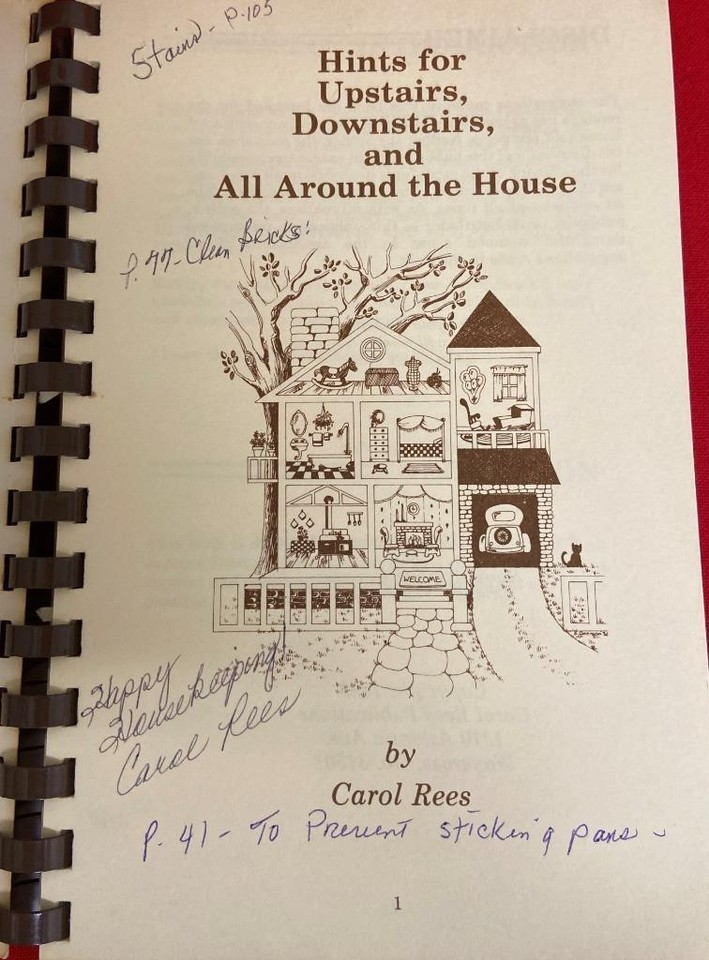 Stains - P.105
Hints for
Upstairs,
Downstairs,
and
All Around the House
P. 77 - Clean Bricks!
WELCOME
Happy
Housekeeping!
Carol Rees
by
Carol Rees
P. 41 - To Prevent sticking pans -
1